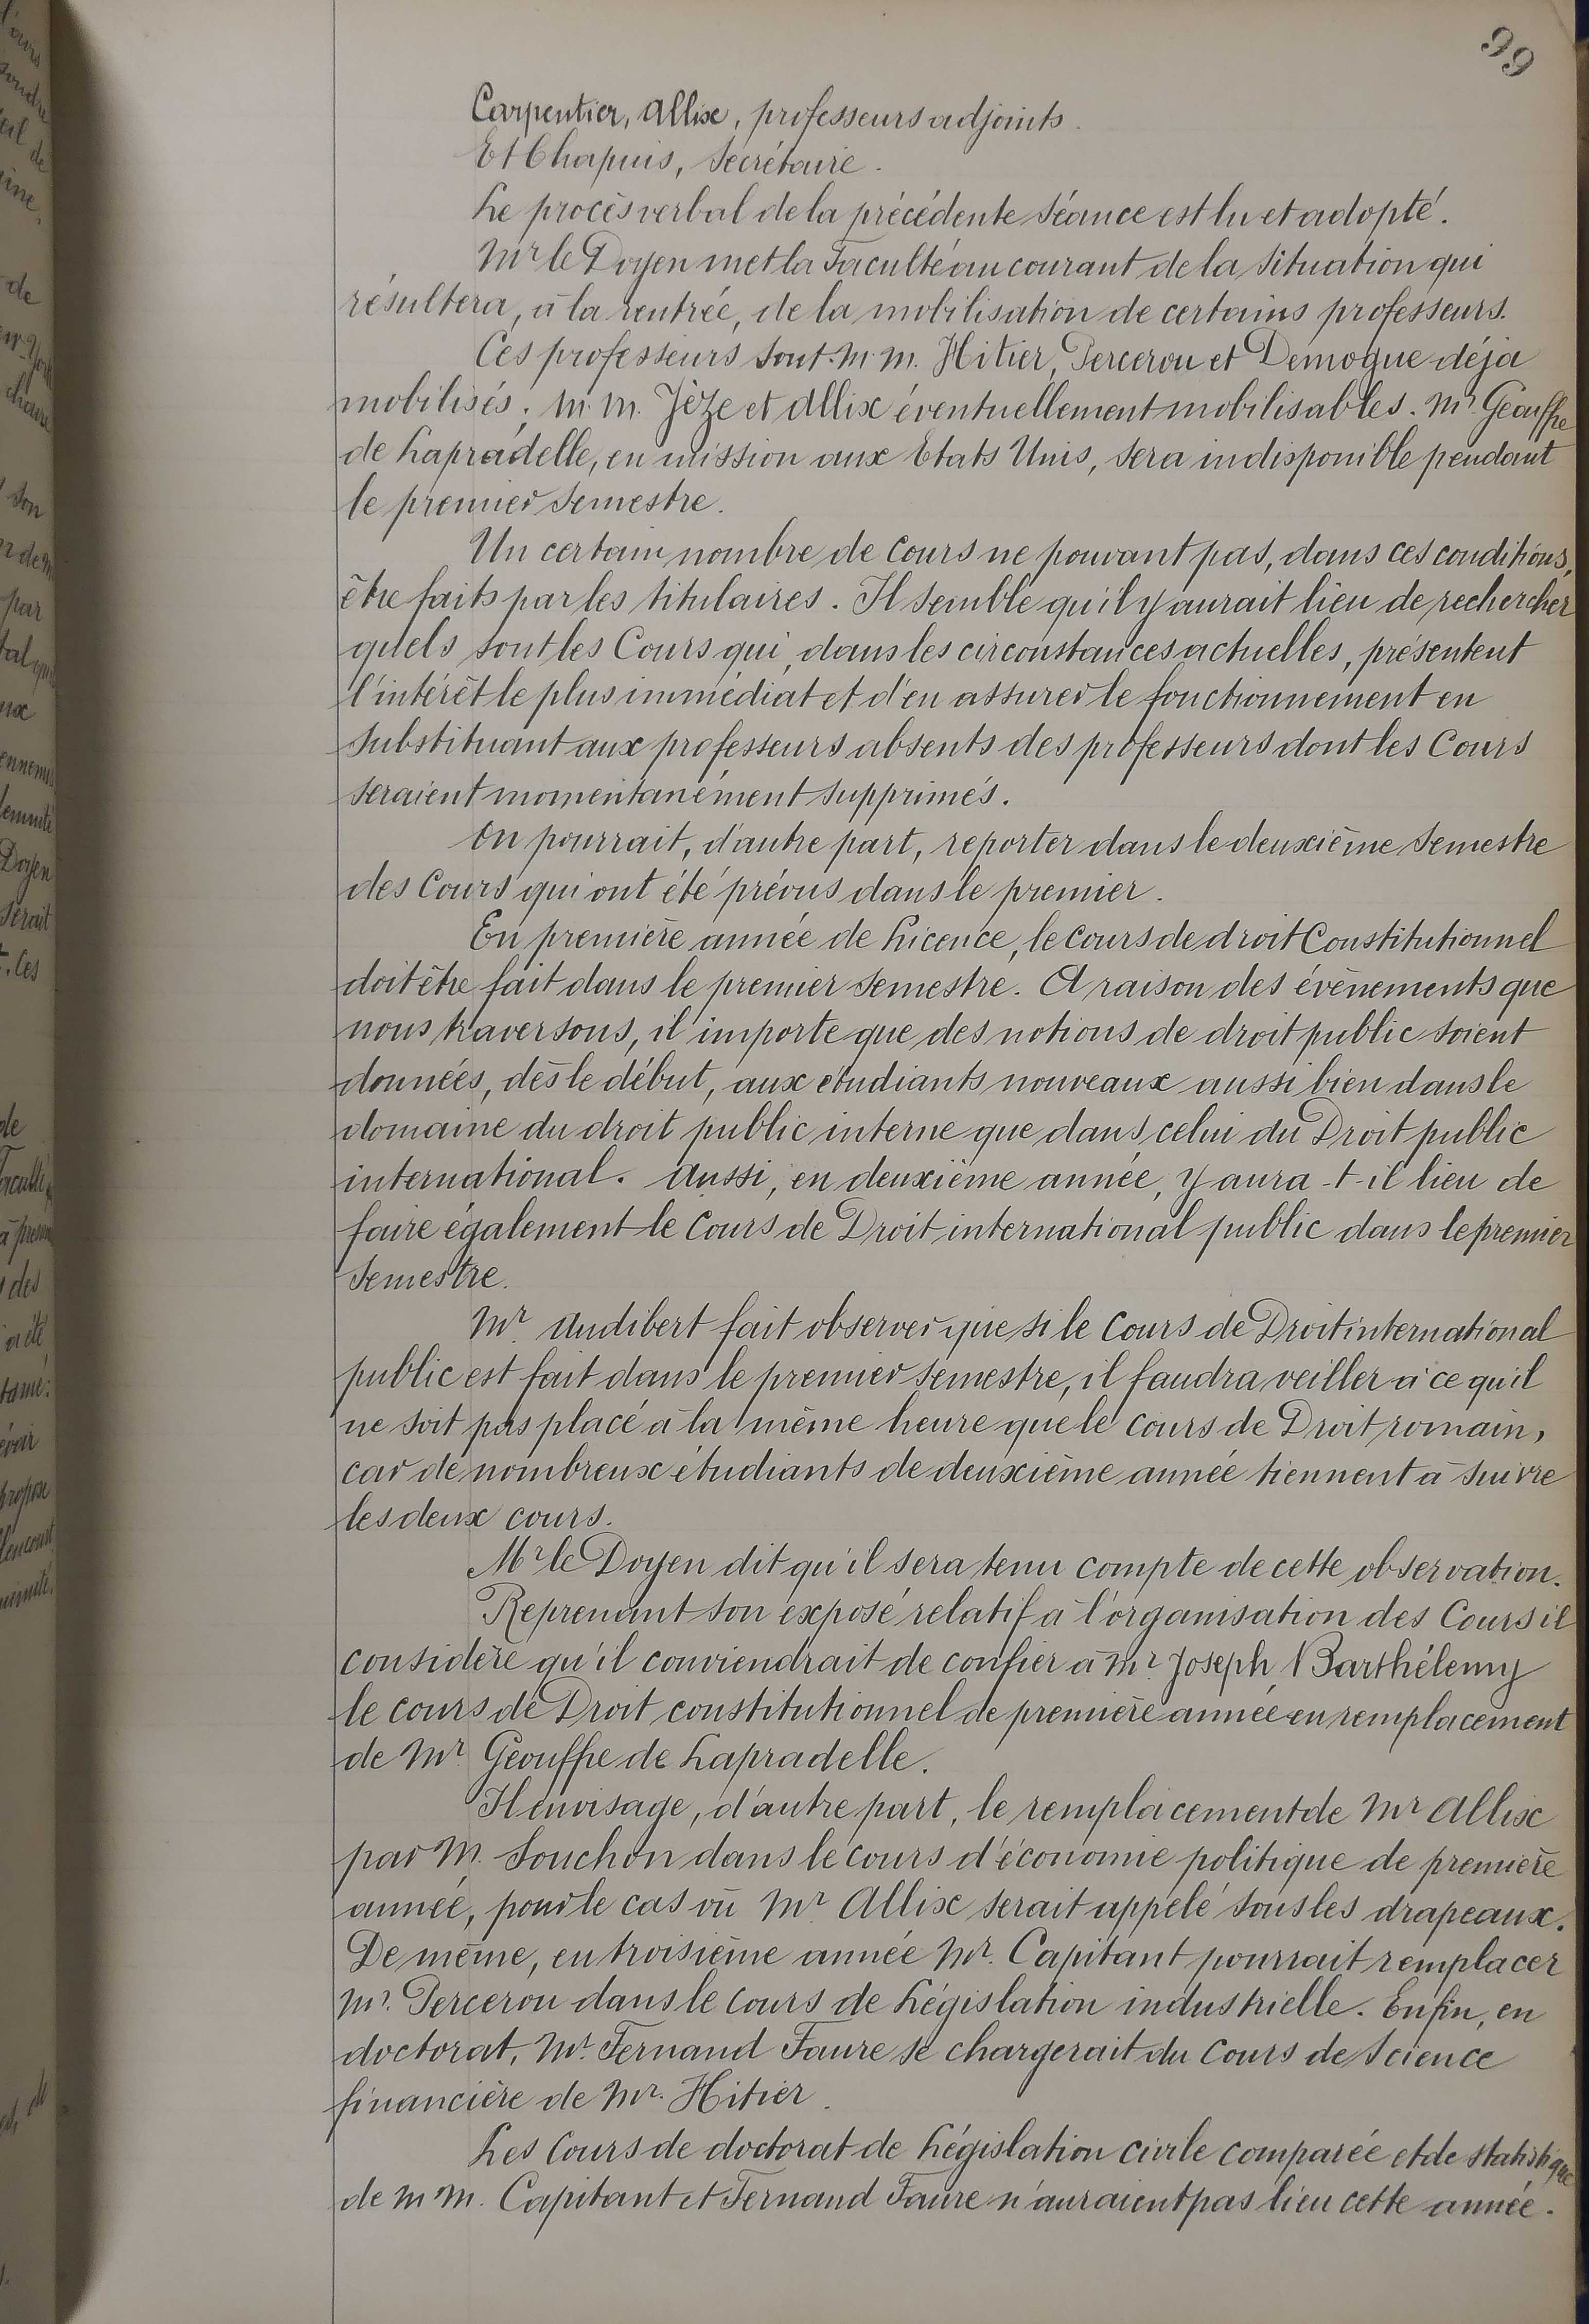 99
Carpentier, Allix, professeurs adjoints.
Et Chapuis, Secrétaire.
Le procès verbal de la précédente Séance est lu et adopté.
Mr le Doyen met la Faculté au courant de la Situation qui
résultera, à la rentrée, de la mobilisation de certains professeurs.
Ces professeurs sont M.M. Hitier, Percerou et Demogue déjà
mobilisés; M.M. Jèze et Allix éventuellement mobilisables. Mr. Geouffre
de Lapradelle, en mission aux Etats Unis, sera indisponible pendant
le premier Semestre.
Un certain nombre de Cours ne pouvant pas, dans ces conditions,
être faits par les titulaires. Il semble qu'il y aurait lieu de rechercher
quels sont les Cours qui, dans les circonstances actuelles, présentent
l'intérêt le plus immédiat et d'en assurer le fonctionnement en
substituant aux professeurs absents des professeurs dont les Cours
seraient momentanément supprimés.
On pourrait, d'autre part, reporter dans le deuxième Semestre
des Cours qui ont été prévus dans le premier.
En première année de Licence, le cours de droit Constitutionnel
doit être fait dans le premier Semestre. A raison des évènements que
nous traversons, il importe que des notions de droit public soient
données, dès le début, aux etudiants nouveaux aussi bien dans le
domaine du droit public interne que dans celui du Droit public
international. Aussi, en deuxième année, y aura-t-il lieu de
faire également le Cours de Droit international public dans le premier
Semestre.
Mr. Audibert fait observer que si le Cours de Droit international
public est fait dans le premier Semestre, il faudra veiller à ce qu'il
ne soit pas placé à la même heure que le cours de Droit romain,
car de nombreux étudiants de deuxième année tiennent à suivre
les deux cours.
Mr le Doyen dit qu'il sera tenu compte de cette observation.
Reprenant son exposé relatif à l'organisation des Cours il
considère qu'il conviendrait de confier à Mr. Joseph Barthélemy
le cours de Droit constitutionnel de première année en remplacement
de Mr Geouffre de Lapradelle.
Il envisage, d'autre part, le remplacement de Mr Allix
par M. Souchon dans le cours d'économie politique de première
année, pour le cas où Mr. Allix serait appelé sous les drapeaux.
De même, en troisième année Mr. Capitant pourrait remplacer
Mr. Percerou dans le Cours de Législation industrielle. Enfin, en
doctorat, Mr. Fernand Faure se chargerait du Cours de Science
financière de Mr. Hitier.
Les Cours de doctorat de Législation civile comparée et de statistique
de M M. Capitant et Fernand Faure n'auraient pas lieu cette année.